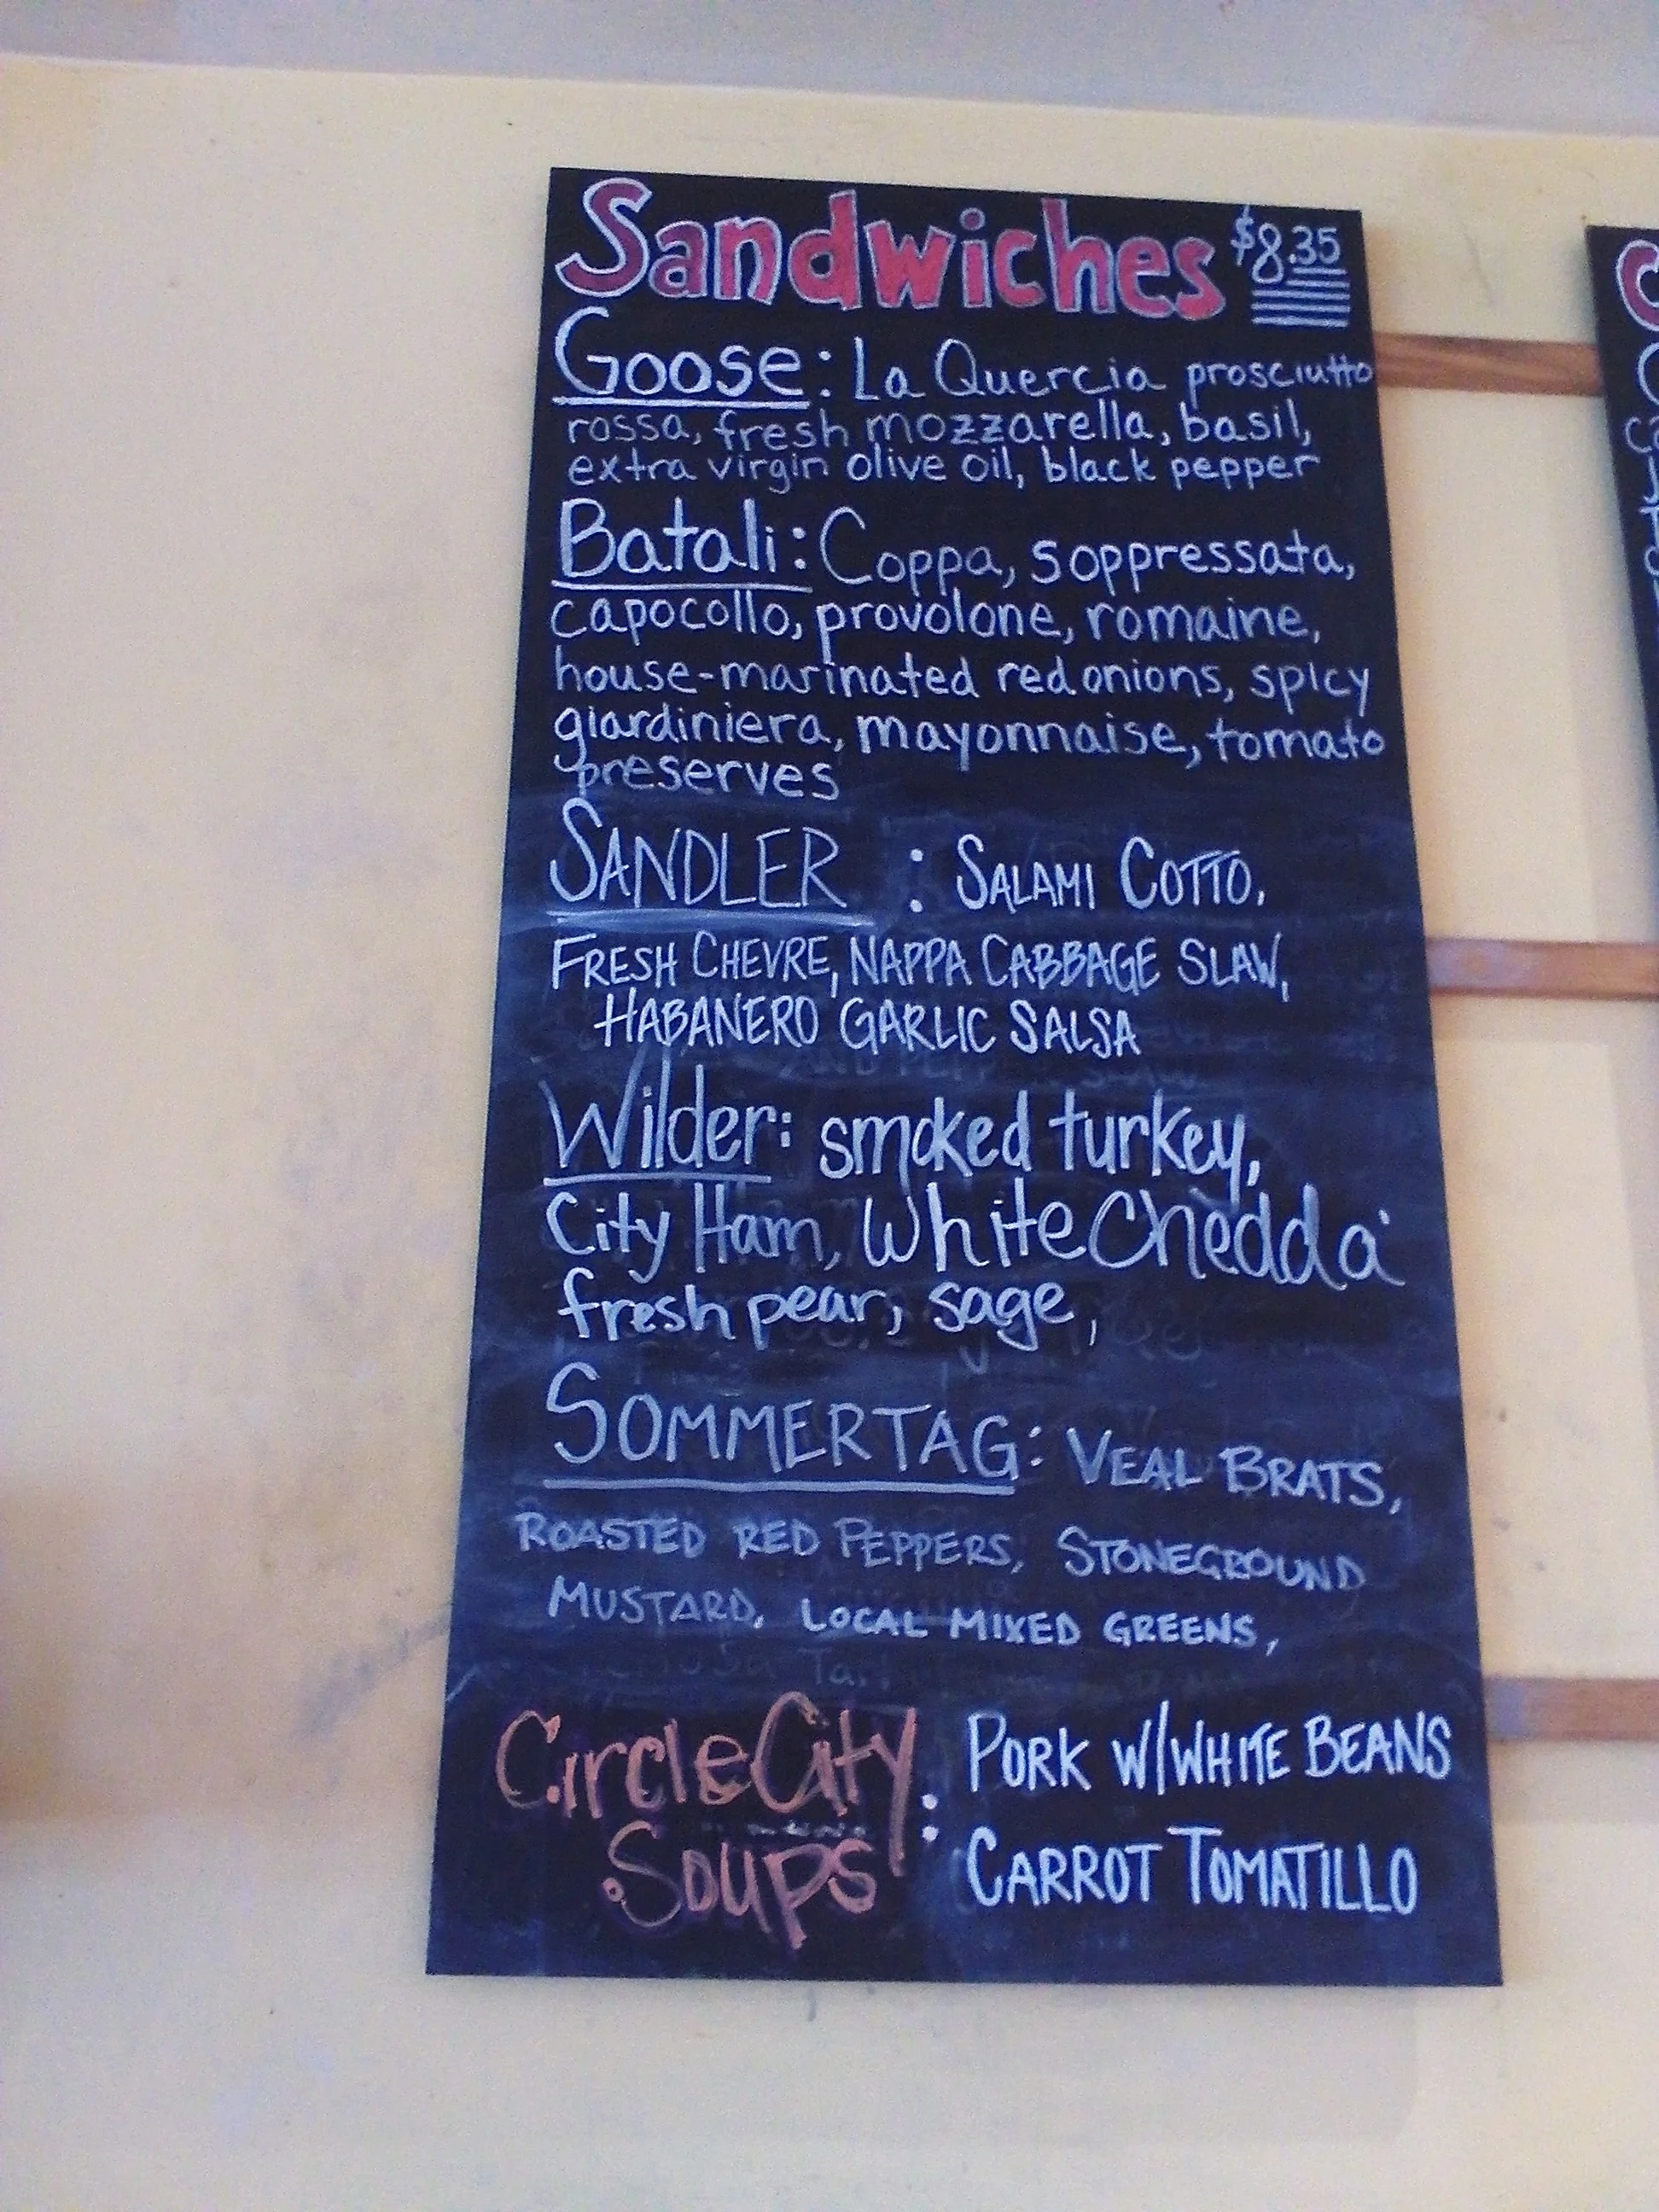 Sandwiches $8.35
Goose: La Quercia prosciutto
rossa, fresh mozzarella, basil,
extra virgin olive oil, black pepper
Batali: Coppa, soppressata,
capocollo, provolone, romaine,
house-marinated red onions, spicy
giardiniera, mayonnaise, tomato
preserves
SANDLER : SALAMI COTTO,
FRESH CHEVRE, NAPPA CABBAGE SLAW,
HABANERO GARLIC SALSA
Wilder: smoked turkey,
City Ham, White Chedda'
fresh pear, sage,
SOMMERTAG: VEAL BRATS,
ROASTED RED PEPPERS, STONEGROUND
MUSTARD, LOCAL MIXED GREENS,
Circle City : PORK W/WHITE BEANS
Soups CARROT TOMATILLO